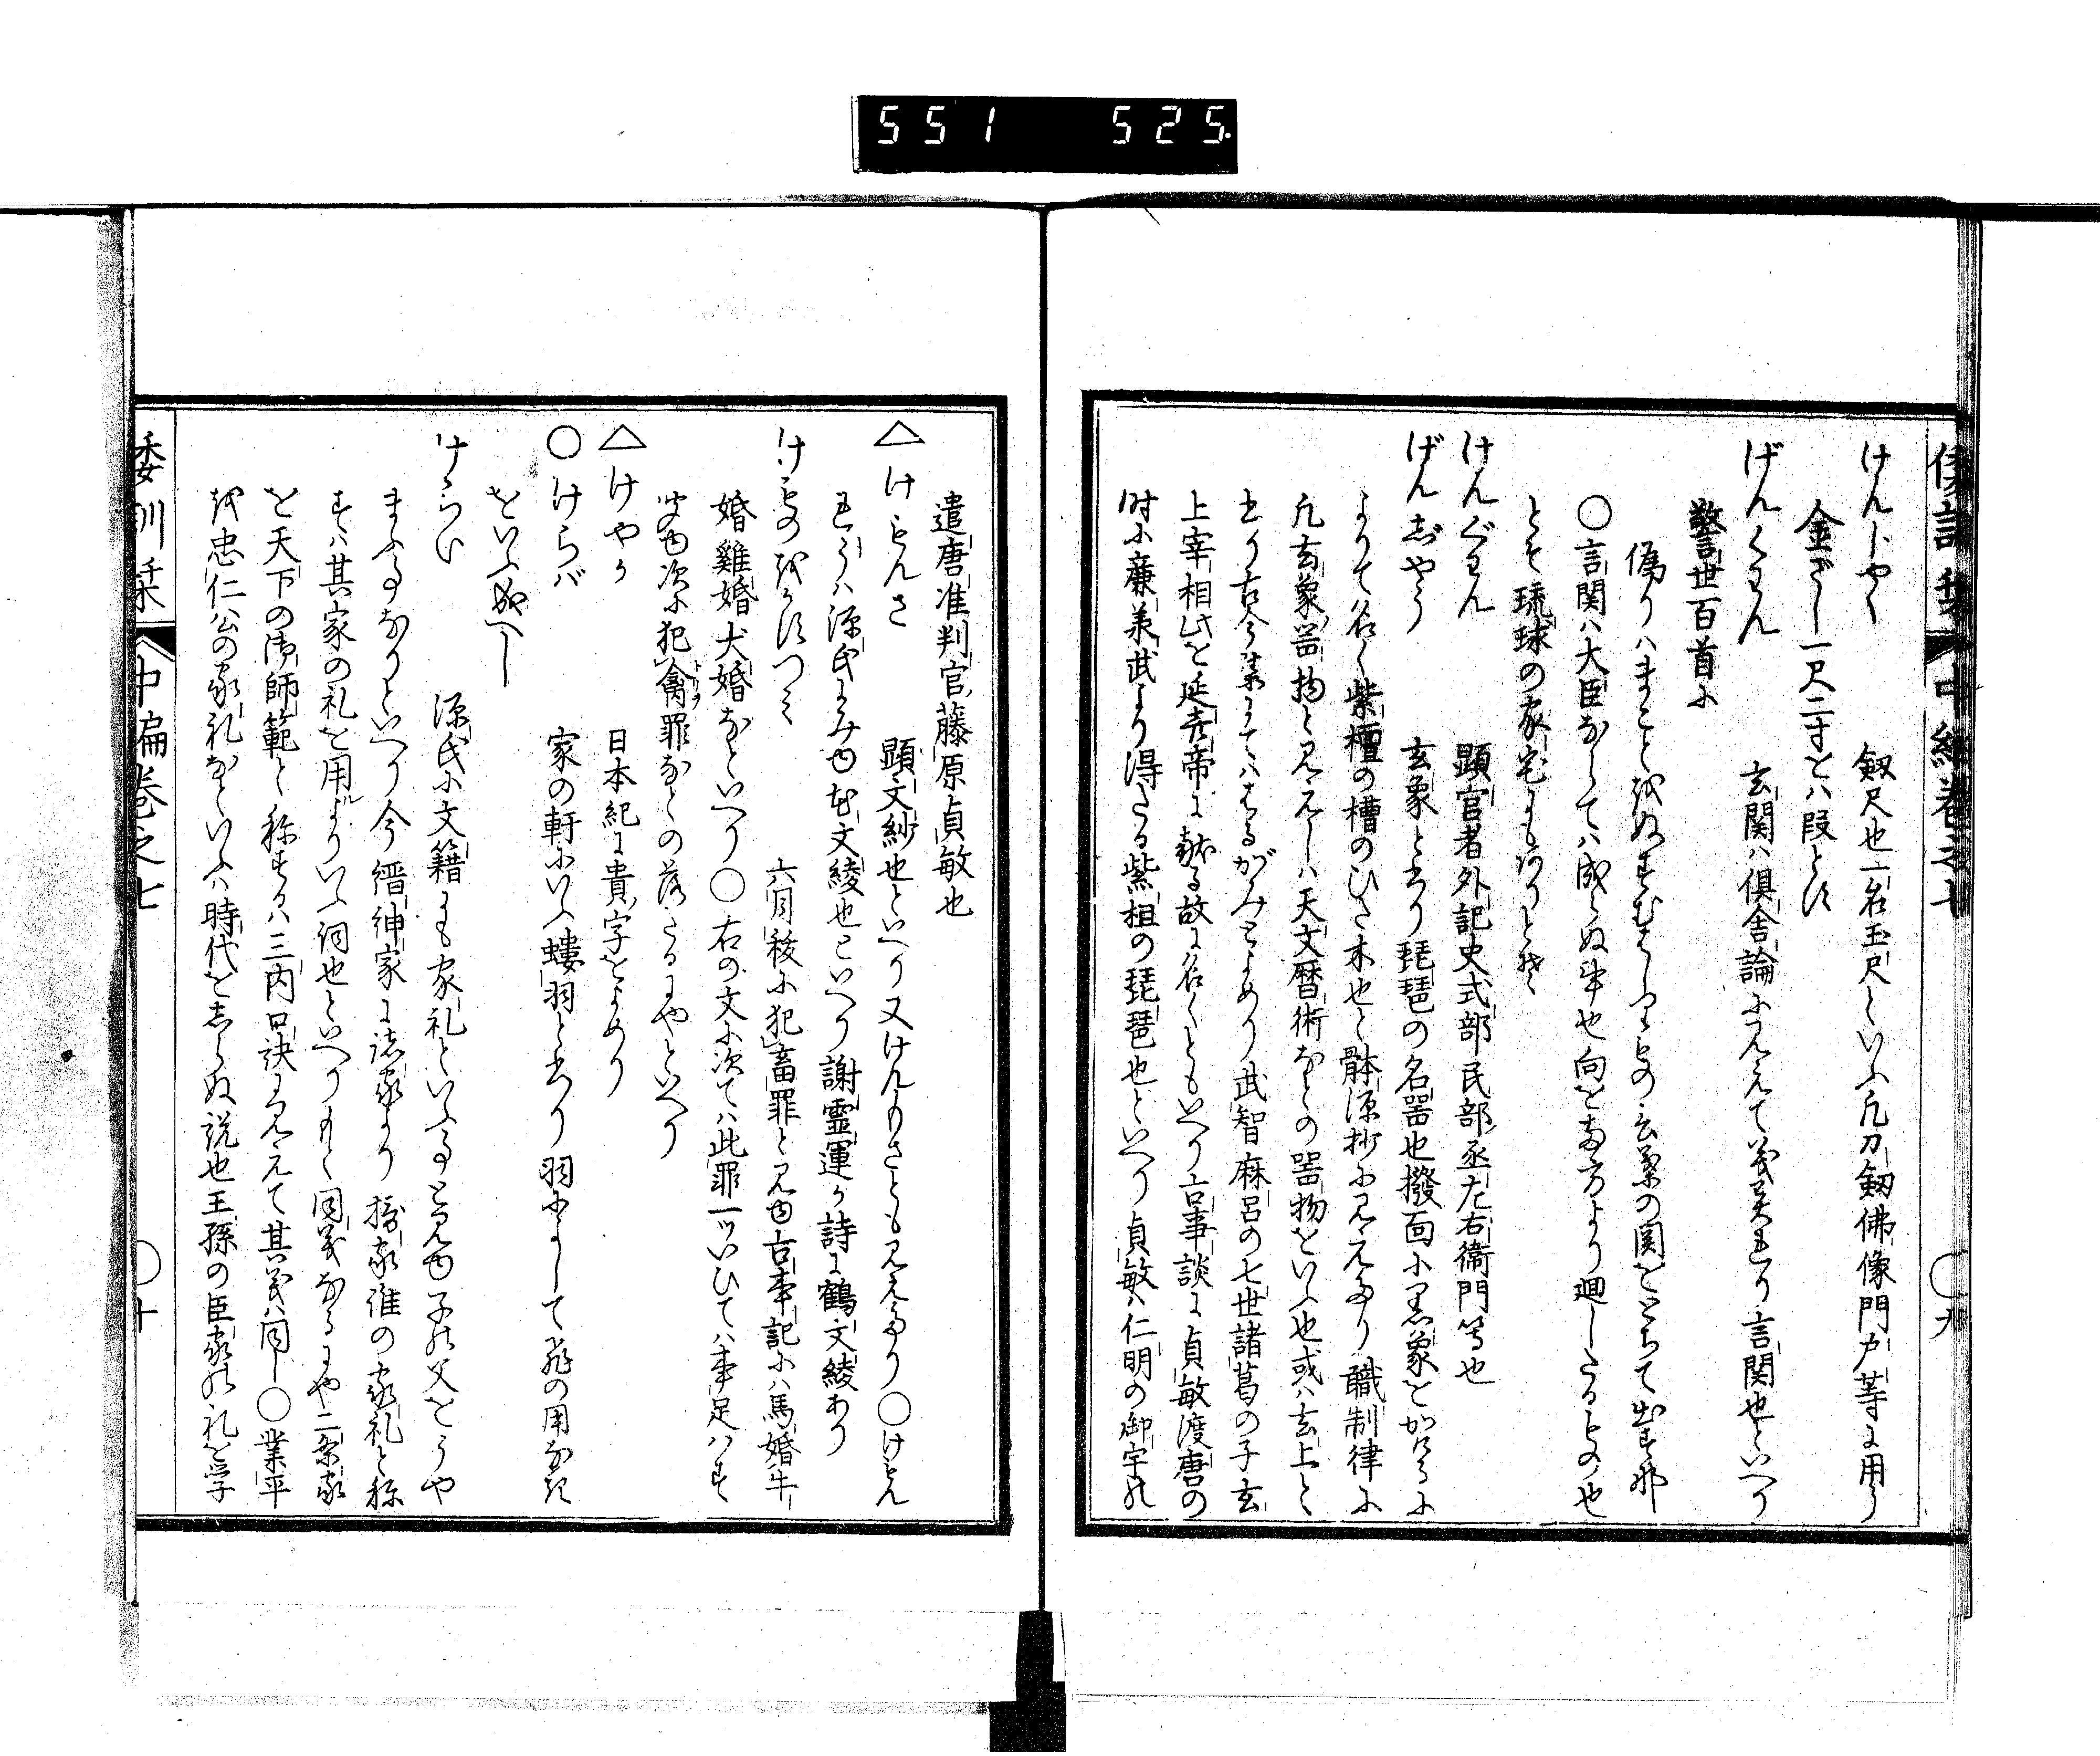 551 525
倭訓栞 中編巻之七 〇九
けんしやく 劔尺也一名玉尺といふ凡刀劔佛像門戸等に用う
金ざし一尺二寸を八段とす
げんくわん 玄関ハ倶舎論にみえて義異れり言関也といへり
警世百首に
偽りハまことをぬすむとの言葉の関をとちて出すな
〇言関ハ大臣ならてハ成らぬ事也向を両方より廻したるもの也
とそ琉球の家宅にもありとそ
けんぐわん 顕官者外記史式部民部丞左右衛門等也
げんじやう 玄象とかけり琵琶の名器也撥面に黒象をかけるに
よりて名く紫檀の槽のひた木也と躰源抄に見えたり職制律に
凡玄象器物と見えしハ天文暦術なとの器物をいふ也或ハ玄上とも
かけり古今集にてハはるがみとよめり武智麻呂の七世諸葛の子玄
上宰相此を延喜帝に献る故に名くともいへり古事談に貞敏渡唐の
時に廉羨武より得たる紫檀の琵琶也といへり貞敏ハ仁明の御宇の
遣唐准判官藤原貞敏也
△けもんさ 顕文紗也といへり又けんもさとも見えたり〇けもん
れうハ源氏にみゆ花文綾也といへり謝霊運か詩に鶴文綾あり
けものをかすつみ 六月祓に犯畜罪と見ゆ古事記にハ馬婚牛
婚雞婚犬婚なといへり〇右の文に次てハ此罪一ツいひてハ事足ハす
次に犯禽罪なとの落たるにやといへり
△けやか 日本紀に貴字をよめり
〇けらば 家の軒にいふ螻羽とかけり羽にして飛の用なき
をいふ成へし
けらい 源氏に文籍にも家礼といふ事と見ゆ子の父をうや
まふ事なりといへり今縉紳家に諸家より摂家誰の家礼と称
するハ其家の礼を用るよりいふ詞也といへりもと同義なるにや二条家
を天下の御師範と称するハ三内口訣に見えて其義ハ同し〇業平
を忠仁公の家礼なといふハ時代をしらぬ説也王孫の臣家の礼を学
倭訓栞 中編巻之七 〇十